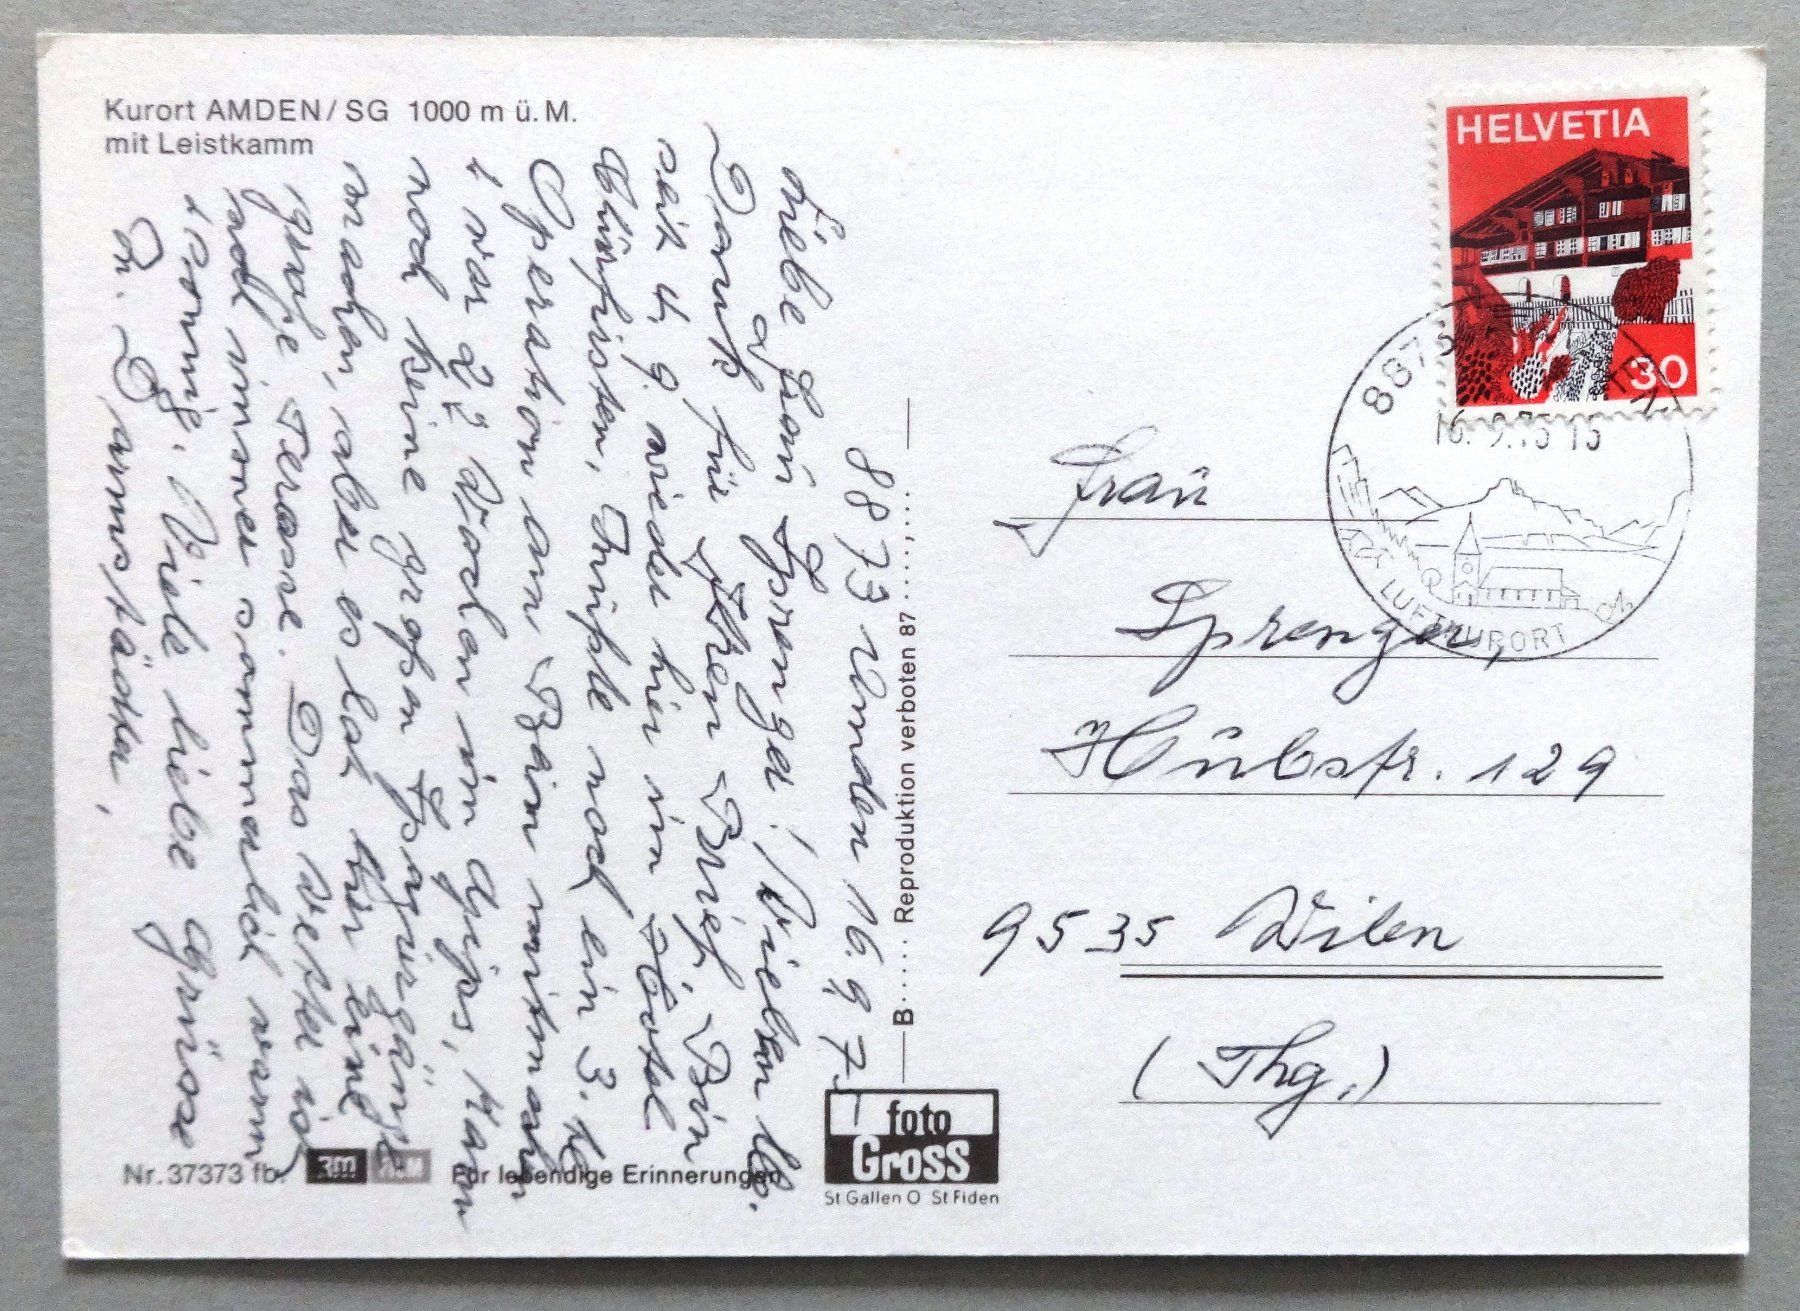 Kurort AMDEN/SG 1000 m ü. M.
mit Leistkamm
8873 Amden 16. 9. 7
Liebe Frau Sprenger! Vielen lb.
Dank für Ihren Brief. Bin
seit 4. 9. wieder hier im Hotel
Musste noch ein 3.
Operation am Bein mitmachen
+ war 2½ Wochen im Gips, kann
noch keine grossen Spaziergänge
machen, aber es hat hier eine
grosse Terasse. Das Wetter ist
noch immer sommerlich warm
+ sonnig. Viele liebe Grüsse
Fr. Darmstädter.
B..... Reproduktion verboten 87 ....., ...
HELVETIA
30
8873
16. 9. 75 15
LUFTKURORT
Frau
Sprenger,
Hübstr. 129
9535 Wilen
(Thg.)
Nr. 37373 fb.
3M
Für lebendige Erinnerungen
foto
Gross
St Gallen O St Fiden